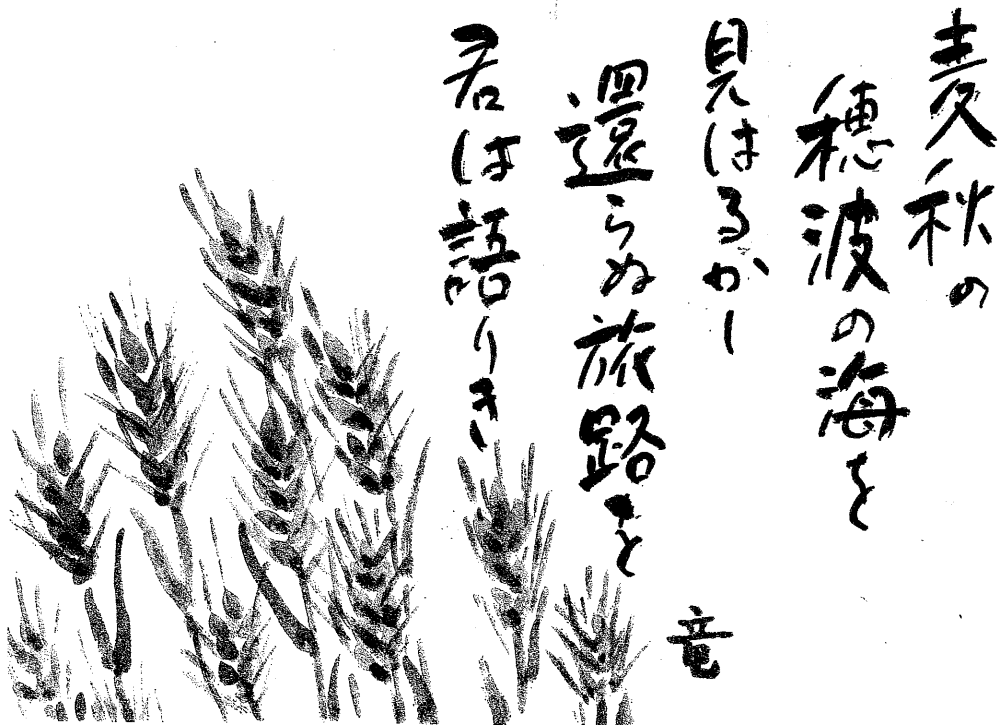 麦秋の
穂波の海を
見はるかし
還らぬ旅路を
君は語りき
竜